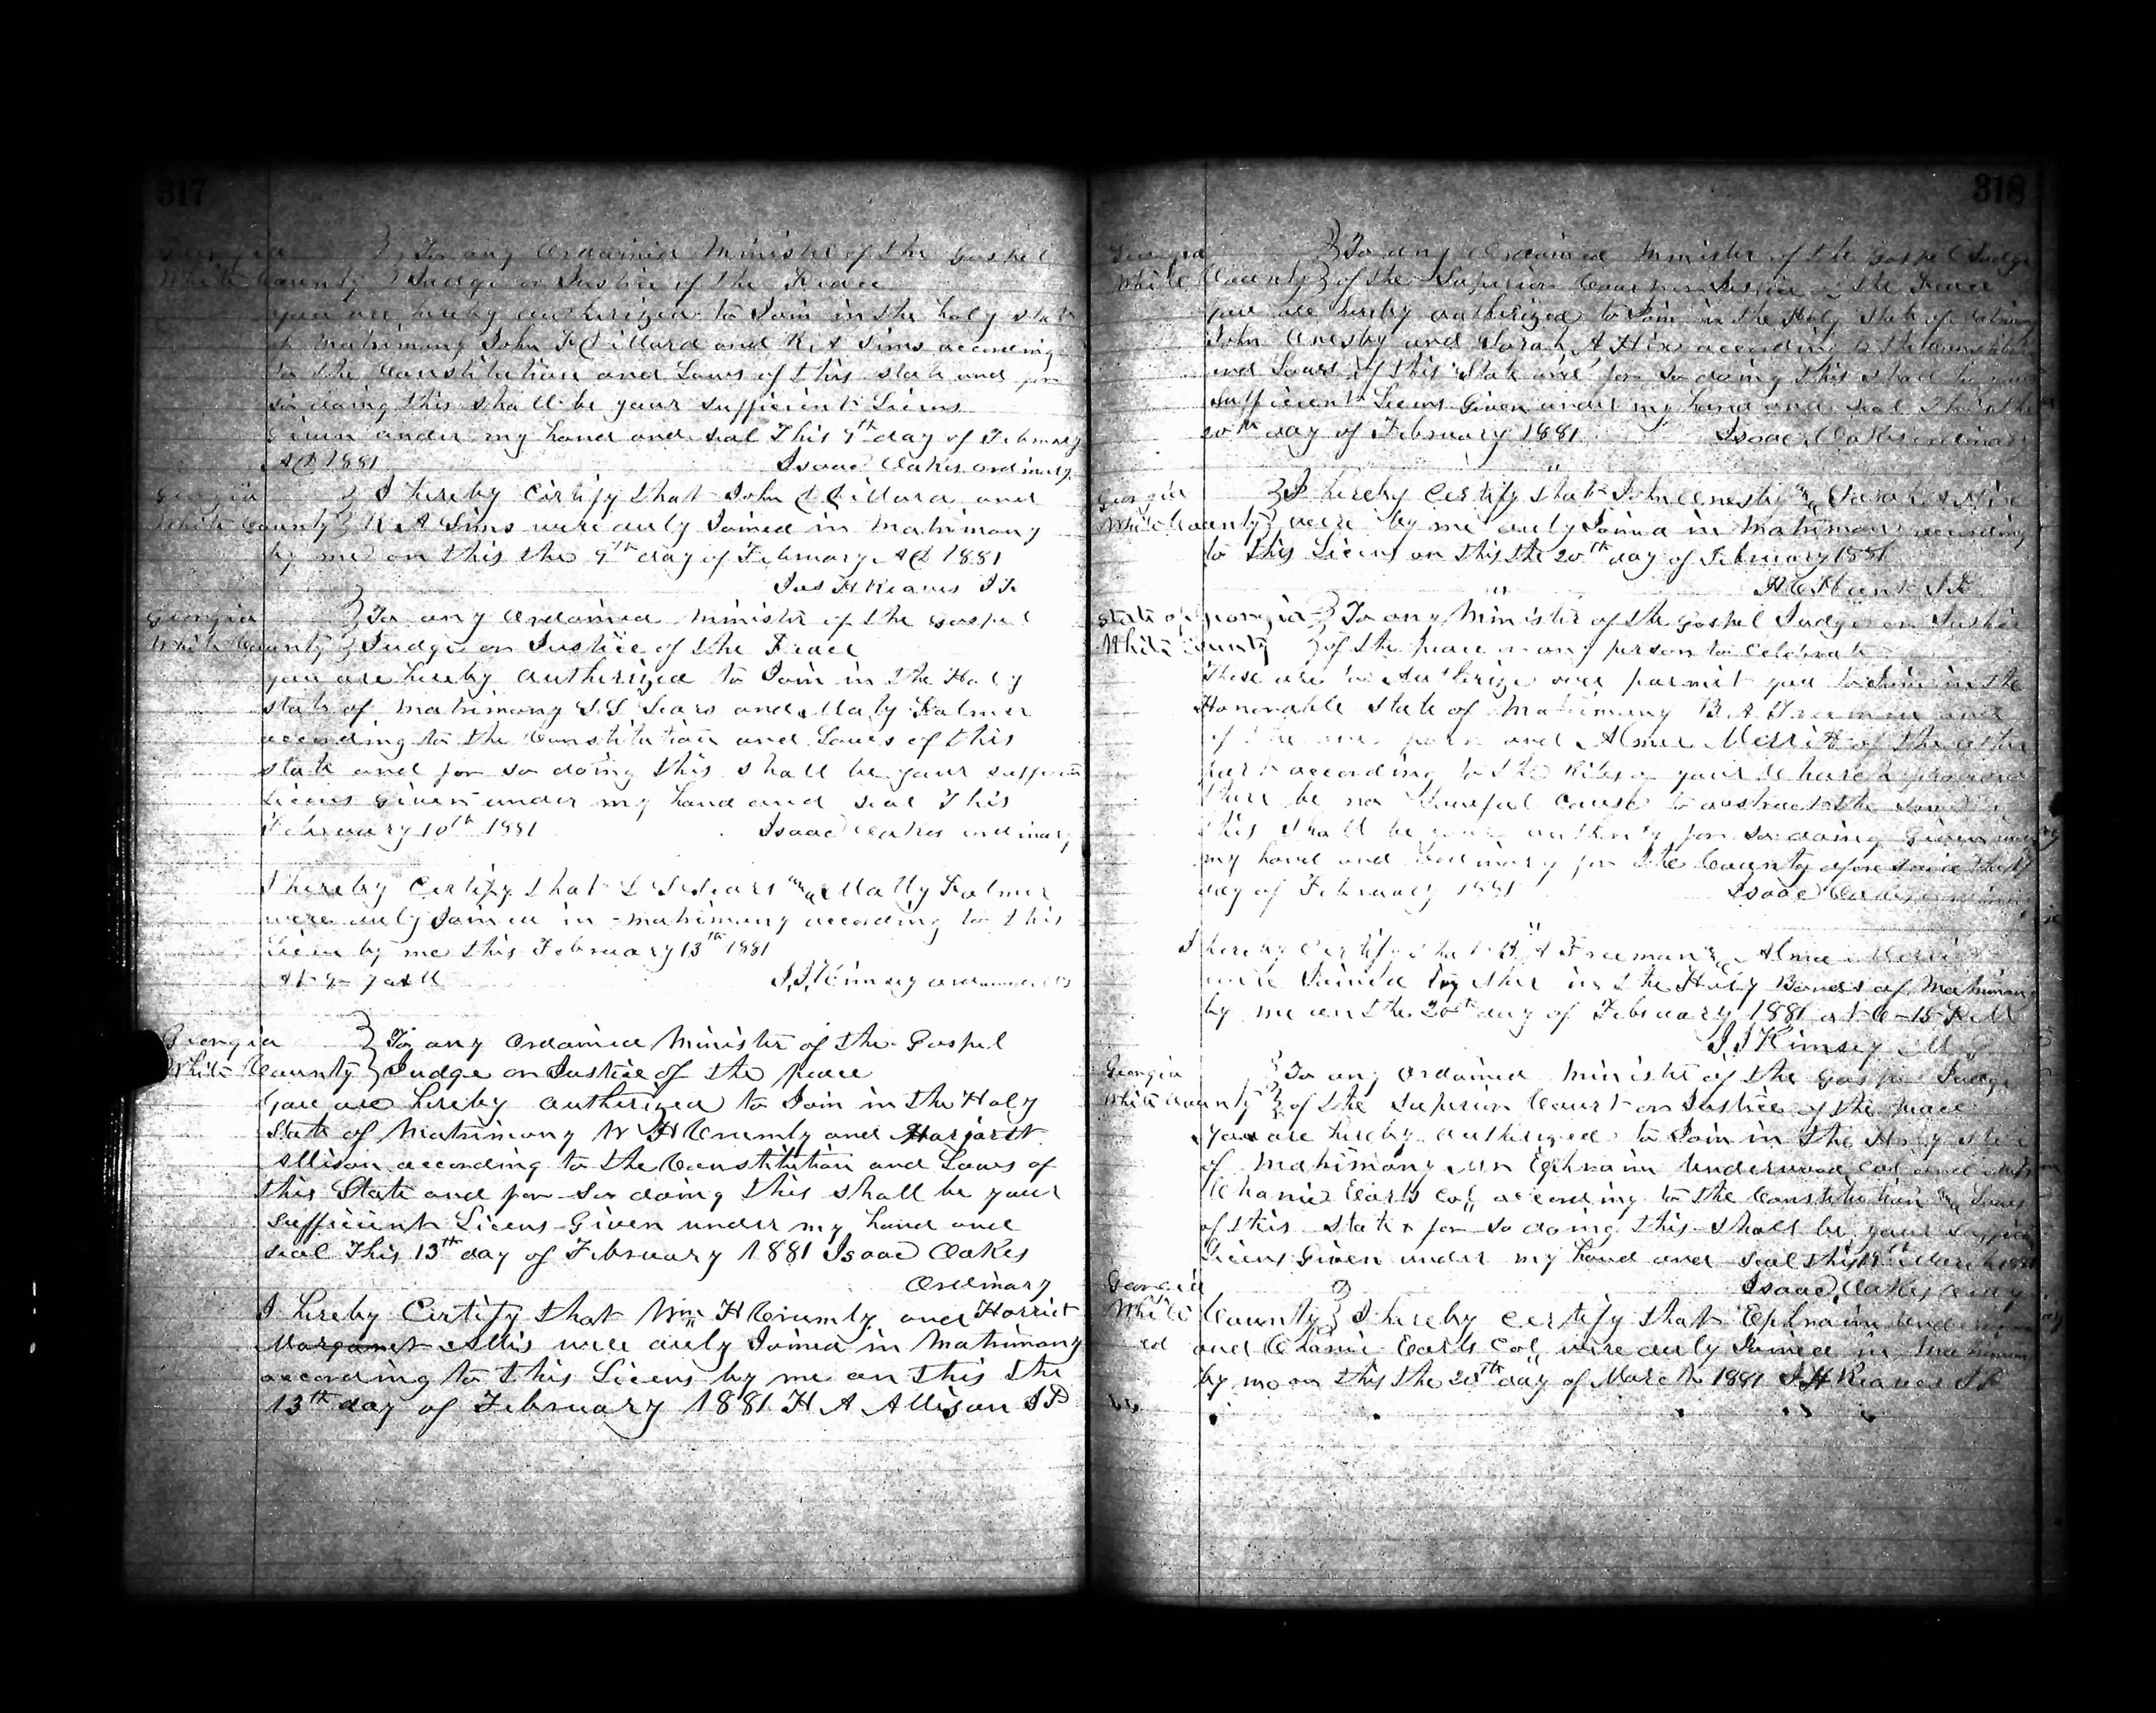 317
Georgia } To any Ordained Minister of the Gospel
White County } Judge or Justice of the Peace
you are hereby authorized to Join in the holy state
of Matrimony John D Dillard and R A Sims according
to the Constitution and Laws of this state and for
so doing this shall be your sufficient Licens
Given under my hand and seal This 9th day of February
AD 1881 Isaac Oakes ordinary
Georgia } I hereby Certify that John D Dillard and
White County } R A Sims were duly Joined in Matrimony
by me on this the 9th day of February AD 1881
Jas H Reaves J P
Georgia } To any Ordained Minister of the Gospel
White County } Judge or Justice of the Peace
you are hereby authorized to Join in the Holy
state of Matrimony and Palmer
according to the Constitution and Laws of this
state and for so doing this shall be your sufficien
Licens Given under my hand and seal This
February 10th 1881 Isaac Oakes ordinary
I hereby Certify that Sears and Palmer
were duly Joined in matrimony according to this
Licen by me this February 13th 1881
J.J. Kimsey
Georgia } To any Ordained Minister of the Gospel
White County } Judge or Justice of the peace
you are hereby authorized to Join in the Holy
State of Matrimony W H Crumly and Margaret
Allison according to the Constitution and Laws of
this State and for so doing this shall be your
sufficient Licens Given under my hand and
seal This 13th day of February 1881 Isaac Oakes
Ordinary
I hereby Certify that Wm H Crumly and Harriet
Margaret Allis were duly Joined in Matrimony
according to this Licens by me on this the
13th day of February 1881 H A Allison J P
318
Georgia } To any Ordained Minister of the Gospel Judge
White County } of the Superior Court or Justice of the Peace
you are hereby authorized to Join in the Holy State of Matrimony
John and Sarah A Hix according to the Constitution
and Laws of this State and for so doing this shall be your
sufficient Licens Given under my hand and seal This the
20th day of February 1881 Isaac Oakes ordinary
Georgia } I hereby Certify that John and Sarah A Hix
White County } were by me duly Joined in Matrimony according
to this Licens on this the 20th day of February 1881
J P
State of Georgia } To any Minister of the Gospel Judge or Justice
White County } of the peace or any person to Celebrate
These are to Authorize and permit you to Join in the
Honorable State of Matrimony B A Freeman
of the one part and Merritt of the other
part according to the Rites of your Church provided
there be no Lawful Cause to obstruct the same
this shall be your authority for so doing Given under
my hand and Ordinary for the County aforesaid
day of February 1881 Isaac Oakes ordinary
I hereby Certify that B A Freeman & Merritt
were Joined together in the Holy Bonds of Matrimony
by me on the 20th day of February 1881 at 6-15 P M
J J Kimsey M G
Georgia } To any Ordained Minister of the Gospel Judge
White County } of the Superior Court or Justice of the peace
you are hereby authorized to Join in the Holy state
of Matrimony Mr Ephraim Underwood Col and
Col according to the Constitution and Laws
of this State & for so doing this shall be your
Licens Given under my hand and seal this March 1881
Georgia Isaac Oakes
White County } I hereby certify that Ephraim Underwood
and Col were duly Joined in Matrimony
by me on this the 20th day of March 1881 J H Reaves J P